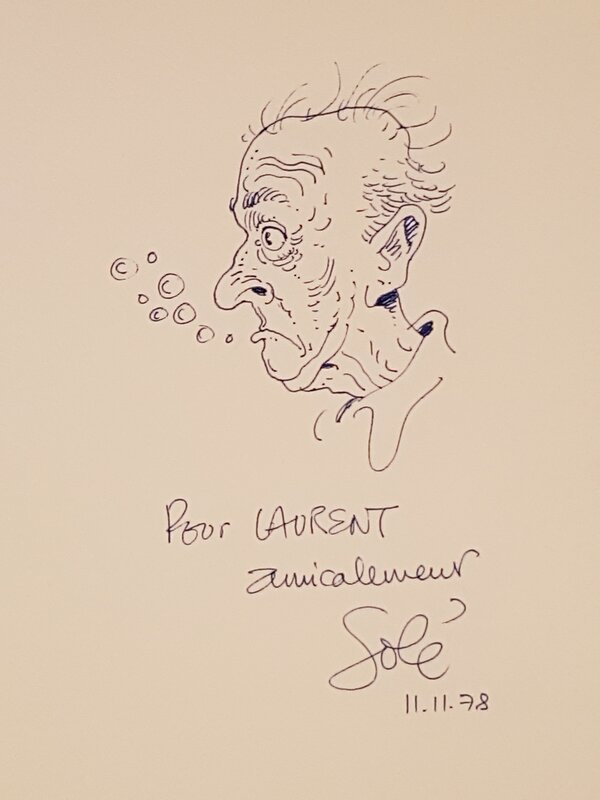 Pour LAURENT
amicalement
Solé
11.11.78